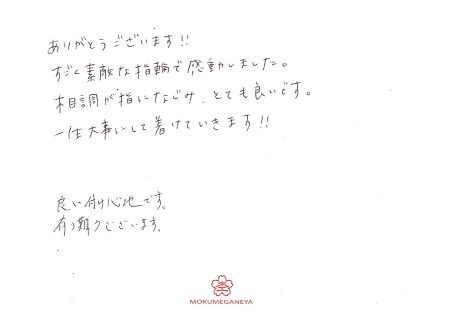 ありがとうございます!!
すごく素敵な指輪で感動しました。
木目調が指になじみ、とても良いです。
一生大事にして着けていきます!!
良い付け心地です。
有り難うございます。
MOKUMEGANEYA